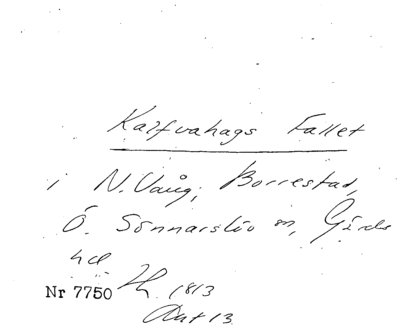 Kalfvahags Fallet
i N. Vång, Borrestad,
Ö. Sönnarslöv sn, Gärds
hd
Nr 7750 1813
Akt 13